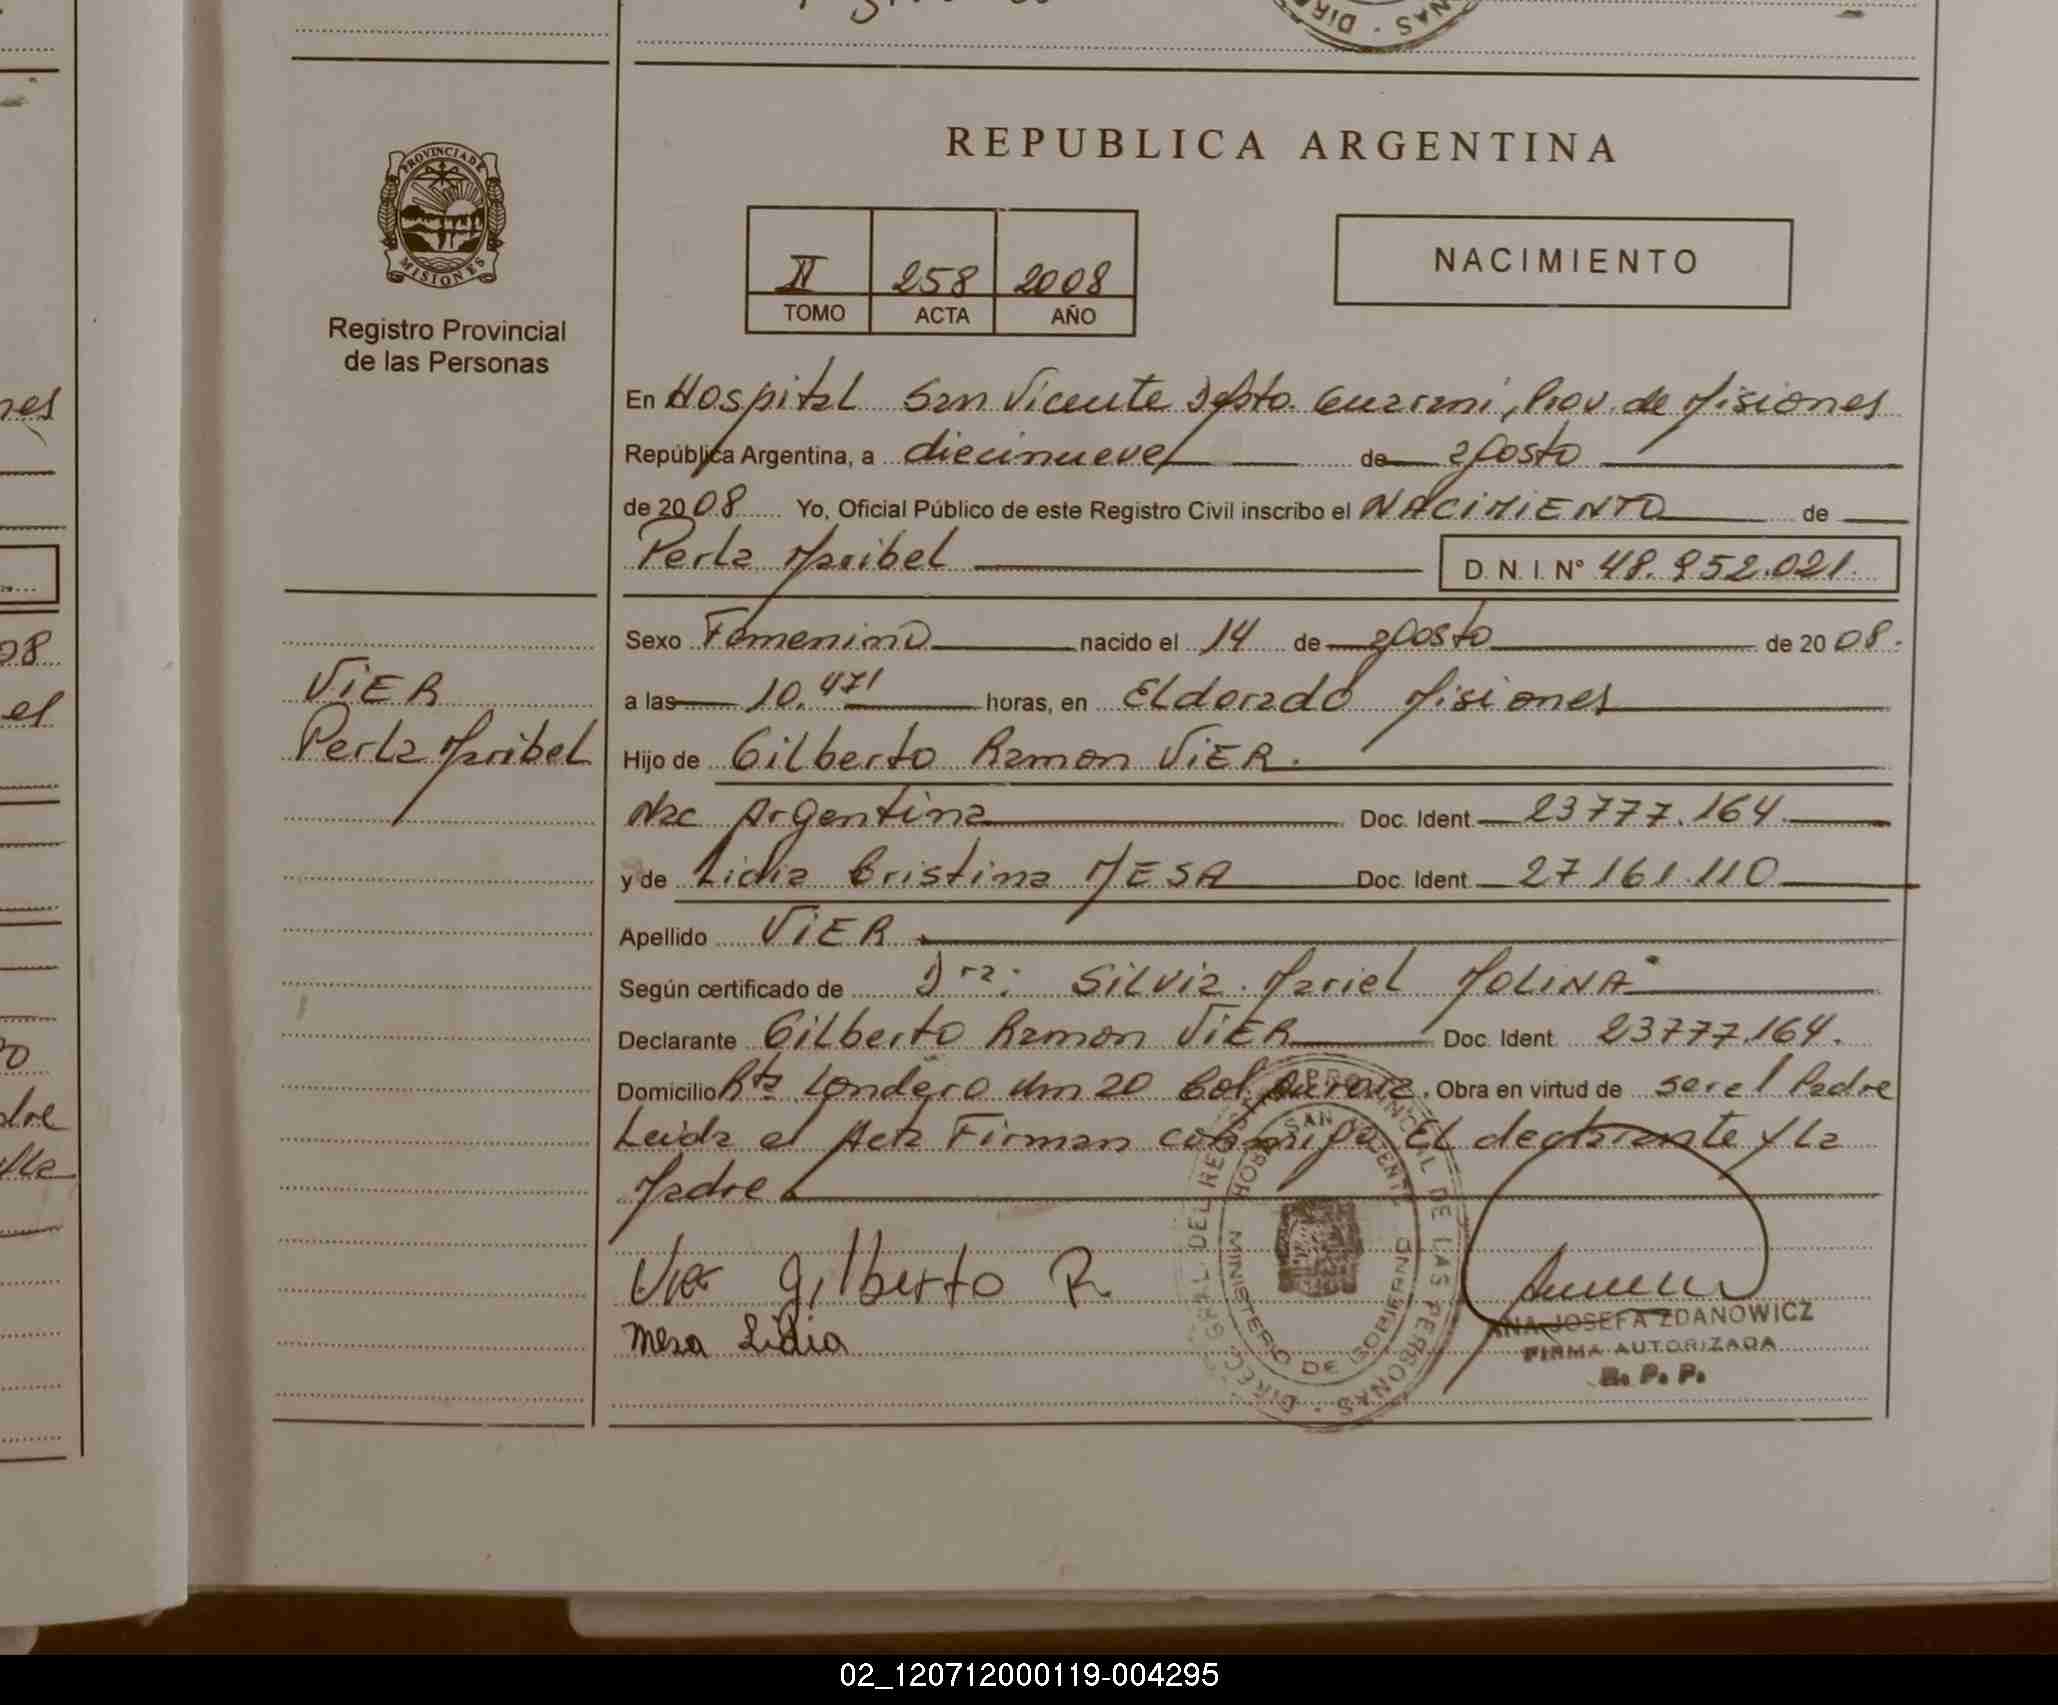 REPUBLICA ARGENTINA
PROVINCIA DE
MISIONES
Registro Provincial
de las Personas
II 258 2008
TOMO ACTA AÑO
NACIMIENTO
En Hospital San Vicente Dpto. Guarani, Prov. de Misiones
República Argentina, a diecinueve de agosto
de 2008 Yo, Oficial Público de este Registro Civil inscribo el NACIMIENTO de
Perla Maribel D. N. I. N° 48.952.021.
Sexo Femenino nacido el 14 de agosto de 2008.
VIER
Perla Maribel
a las 10. horas, en Eldorado Misiones
Hijo de Gilberto Ramon VIER.
Nac Argentina Doc. Ident. 23777.164.
y de Lidia Cristina MESA Doc. Ident. 27161.110
Apellido VIER
Según certificado de Dra: Silvia. Mariel MOLINA
Declarante Gilberto Ramon VIER Doc. Ident. 23777.164.
Domicilio Rta Londero km 20 Col. Obra en virtud de ser el Padre
Leida el Acta Firman conmigo El declarante y la
Madre
Vier Gilberto R.
Mesa Lidia
DIREC. GRAL. DEL REGISTRO PROVINCIAL DE LAS PERSONAS
SAN VICENTE
MINISTERIO DE GOBIERNO
ANA JOSEFA ZDANOWICZ
FIRMA AUTORIZADA
R. P. P.
02_120712000119-004295